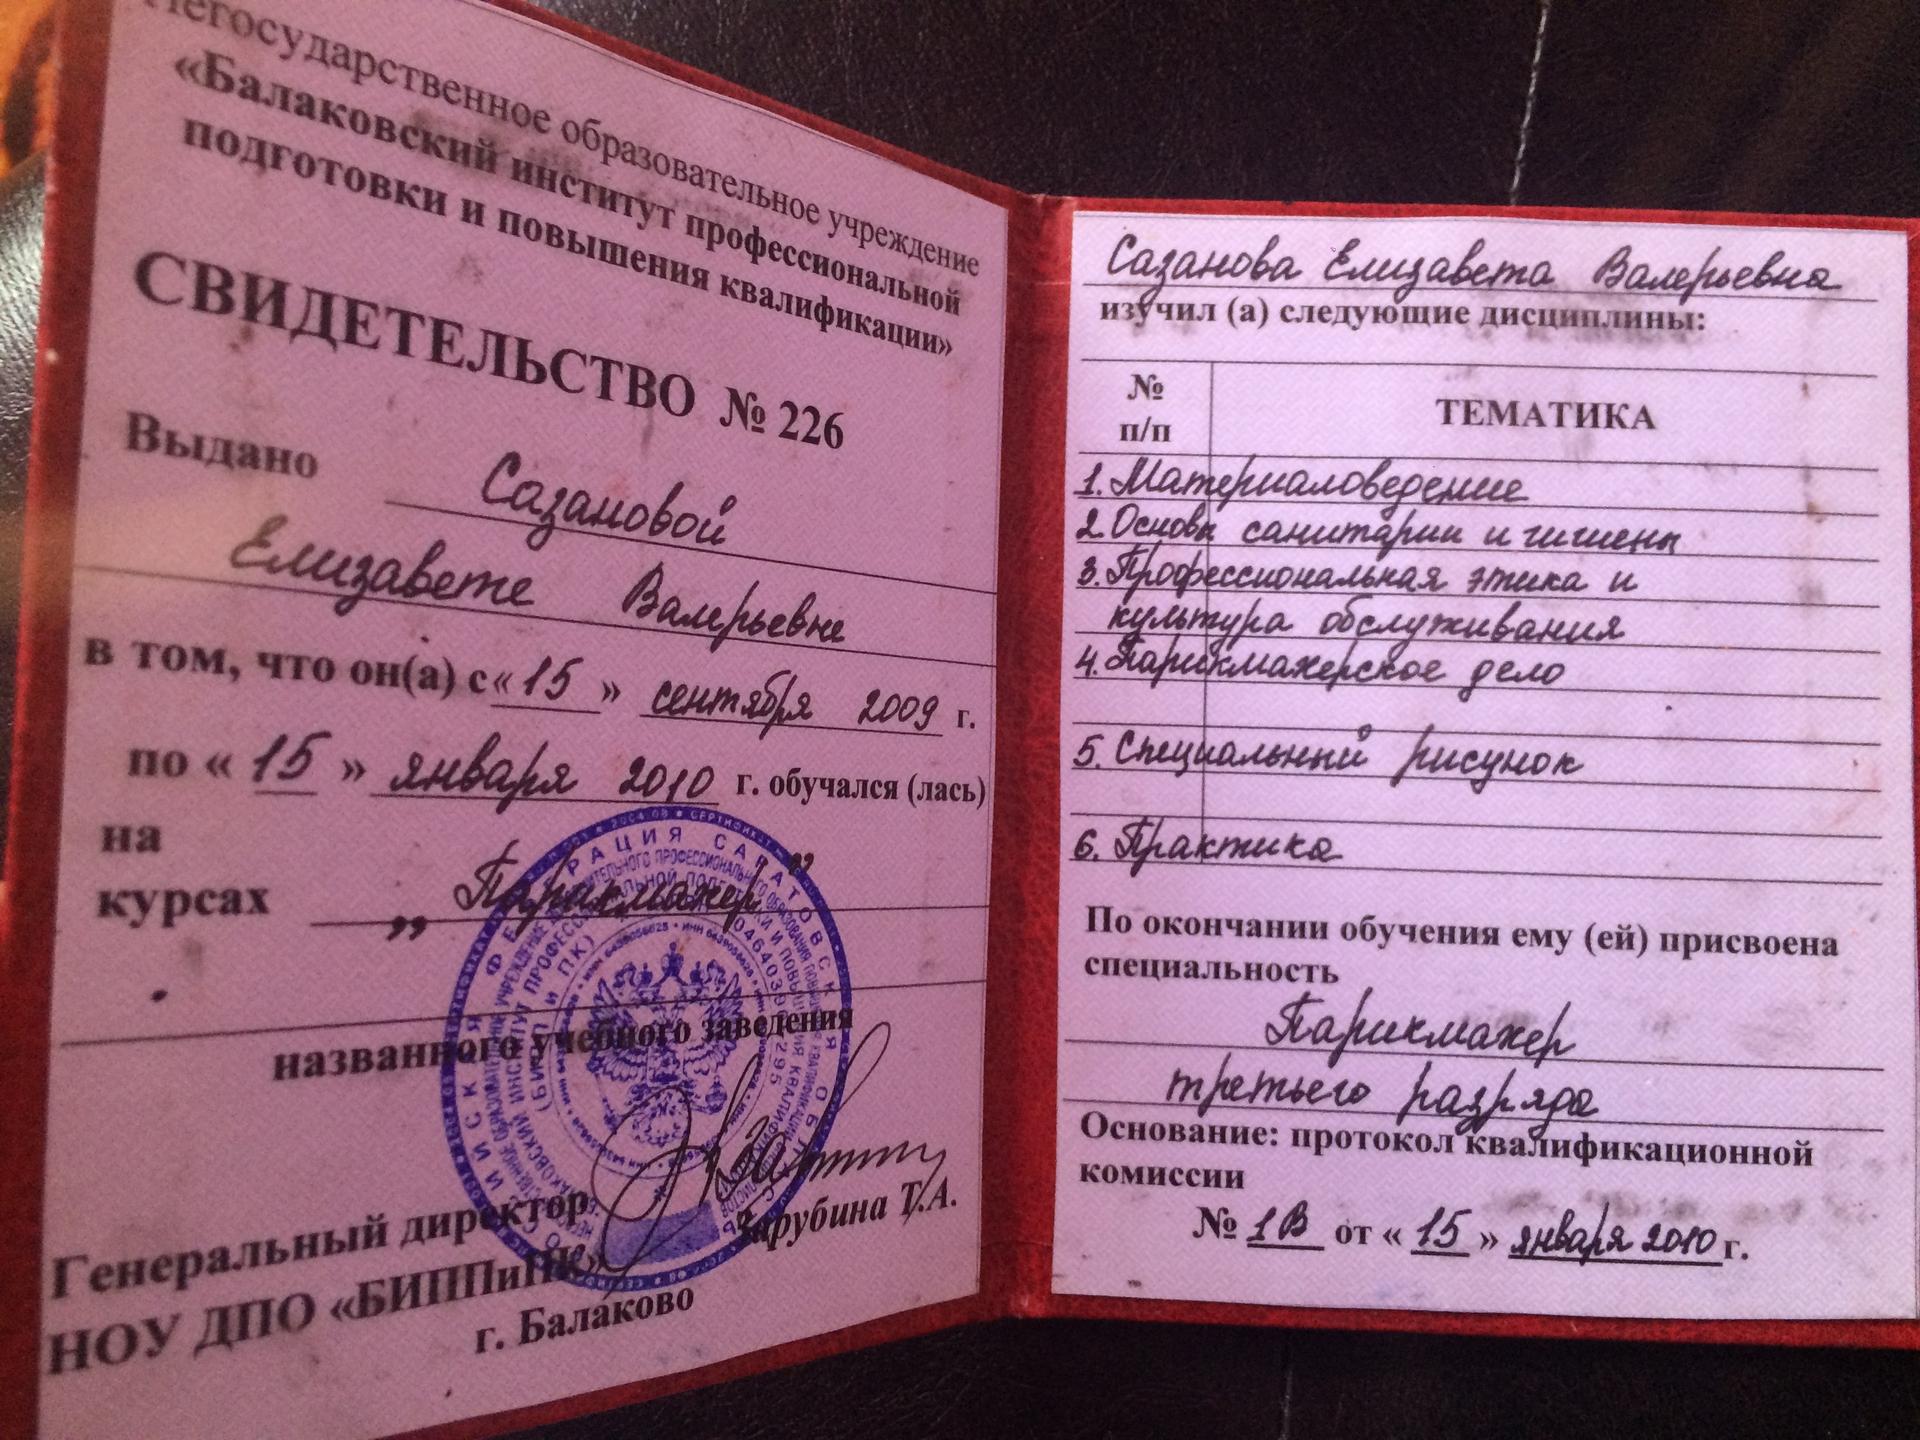 Негосударственное образовательное учреждение
«Балаковский институт профессиональной
подготовки и повышения квалификации»
СВИДЕТЕЛЬСТВО № 226
Выдано Сазановой
Елизавете Валерьевне
в том, что он(а) с «15» сентября 2009 г.
по «15» января 2010 г. обучался (лась)
на
курсах „Парикмахер"
названного учебного заведения
Генеральный директор
НОУ ДПО «БИППиПК»
Зарубина Т.А.
г. Балаково
Сазанова Елизавета Валерьевна
изучил (а) следующие дисциплины:
№
п/п
ТЕМАТИКА
1. Материаловедение
2. Основы санитарии и гигиены
3. Профессиональная этика и
культура обслуживания
4. Парикмахерское дело
5. Специальный рисунок
6. Практика
По окончании обучения ему (ей) присвоена
специальность
Парикмахер
третьего разряда
Основание: протокол квалификационной
комиссии
№ 1В от «15» января 2010 г.